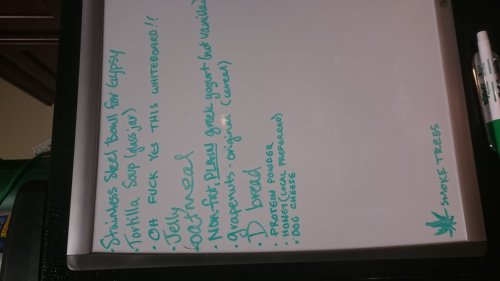 Stainless Steel bowl for Gypsy
• Tortilla Soup (glass jar)
• OH FUCK YES THIS WHITEBOARD!!
• Jelly
• oatmeal
• Non-fat, PLAIN greek yogurt (not vanilla)
• grapenuts - original (cereal)
• D bread
• PROTEIN POWDER
• HONEY (LOCAL PREFERRED)
• DOG CHEESE
SMOKE TREES